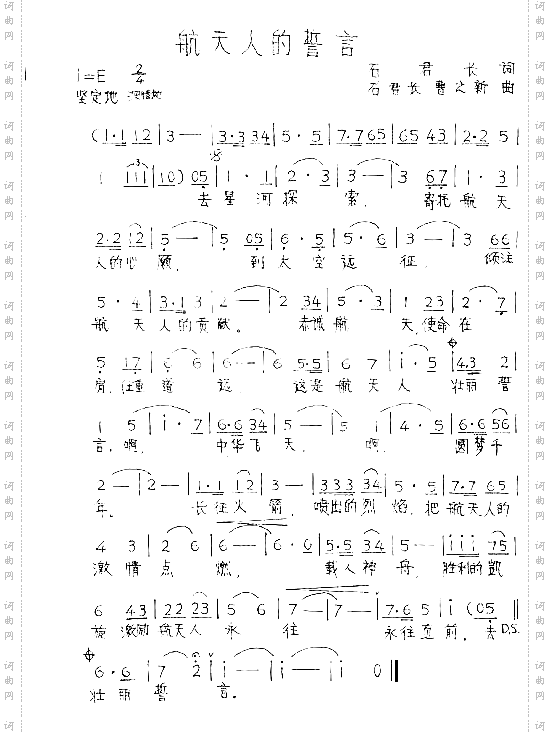 航天人的誓言
1=E 2/4
石君长 词
坚定地
石君长 曹之新 曲
(1·1 12 | 3 — | 3·3 34 | 5·5 | 7·7 65 | 65 43 | 2·2 5 |
1 111 | 10) 05 | 1·1 | 2·3 | 3 — | 3 67 | 1·3 |
去星河探索, 寄托航天
2·2 12 | 5 — | 5 05 | 6·5 | 5·6 | 3 — | 3 66 |
人的心愿, 到太空远征, 倾注
5·4 | 3·1 3 | 2 — | 2 34 | 5·3 | 1 23 | 2·7 |
航天人的贡献。 赤诚航天,使命在
5 17 | 6 6 | 6 — | 6 — | 5·5 6 7 | i·5 | 4·3 2 |
肩,任重道远, 这是航天人 壮丽誓
1 5 | i·7 | 6·6 34 | 5 — | 5 i | 4·5 | 6·6 56 |
言,啊, 中华飞天, 啊, 圆梦千
2 — | 2 — | 1·1 12 | 3 — | 333 34 | 5·5 | 7·7 65 |
年。 长征火箭,喷出的烈焰,把航天人的
4 3 | 2 6 | 6 — | 6·6 | 5·5 34 | 5 — | iii 75 |
激情点燃, 载人神舟,胜利的凯
6 43 | 22 23 | 5 6 | 7 — | 7 — | 7·6 5 | i (05 ‖
旋激励航天人永往 永往直前。去 D.S.
6·6 | 7 2 | i — | i — | i 0 ‖
壮丽誓言。
词曲网
词曲网
词曲网
词曲网
词曲网
词曲网
词曲网
词曲网
词曲网
词曲网
词曲网
词曲网
词曲网
词曲网